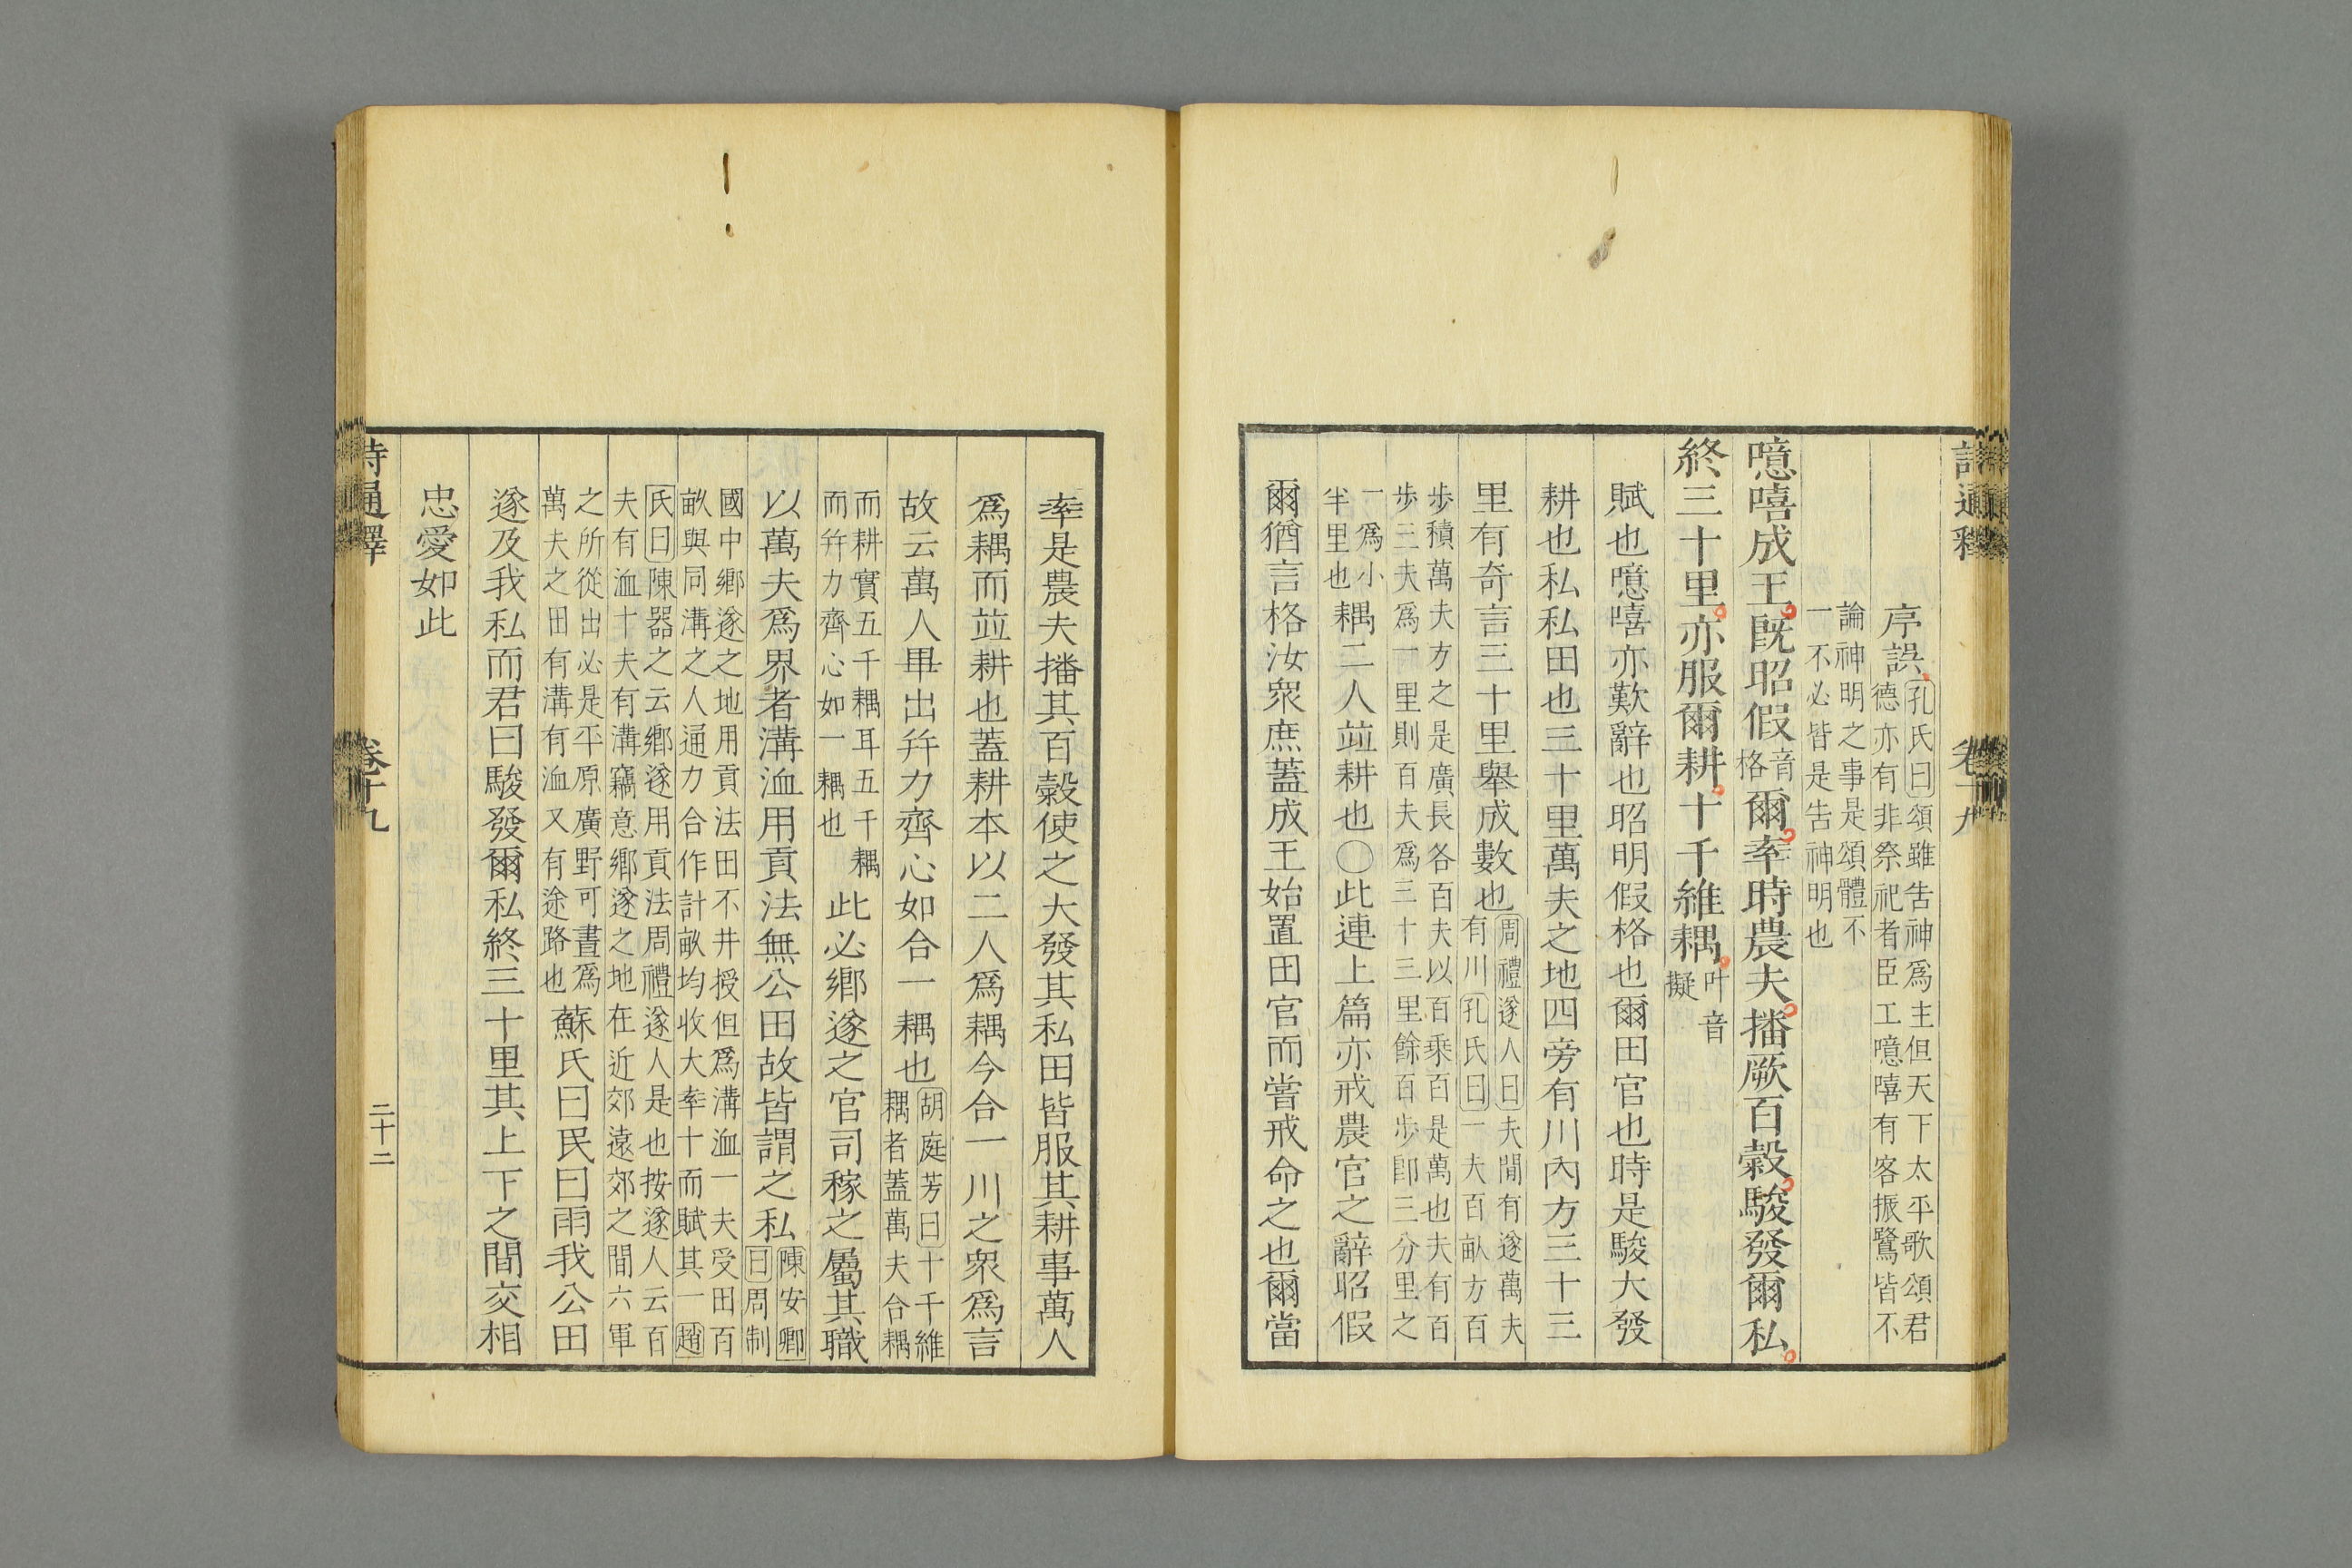 詩通釋
卷十九
序誤孔氏曰頌雖告神爲主但天下太平歌頌君
德亦有非祭祀者臣工噫嘻有客振鷺皆不
論神明之事是頌體不
一不必皆是告神明也
噫嘻成王既昭假音格爾率時農夫播厥百穀駿發爾私
終三十里亦服爾耕十千維耦叶音擬
賦也噫嘻亦歎辭也昭明假格也爾田官也時是駿大發
耕也私私田也三十里萬夫之地四旁有川內方三十三
里有奇言三十里舉成數也周禮遂人曰夫閒有遂萬夫
有川孔氏曰一夫百畝方百
步積萬夫方之是廣長各百夫以百乘百是萬也夫有百
步三夫爲一里則百夫爲三十三里餘百步即三分里之
一爲小
半里也耦二人竝耕也〇此連上篇亦戒農官之辭昭假
爾猶言格汝衆庶蓋成王始置田官而嘗戒命之也爾當
率是農夫播其百穀使之大發其私田皆服其耕事萬人
爲耦而竝耕也蓋耕本以二人爲耦今合一川之衆爲言
故云萬人畢出幷力齊心如合一耦也胡庭芳曰十千維
耦者蓋萬夫合耦
而耕實五千耦耳五千耦
而幷力齊心如一耦也此必鄉遂之官司稼之屬其職
以萬夫爲界者溝洫用貢法無公田故皆謂之私陳安卿
曰周制
國中鄉遂之地用貢法田不井授但爲溝洫一夫受田百
畝與同溝之人通力合作計畝均收大率十而賦其一趙
氏曰陳器之云鄉遂用貢法周禮遂人是也按遂人云百
夫有洫十夫有溝竊意鄉遂之地在近郊遠郊之間六軍
之所從出必是平原廣野可畫爲
萬夫之田有溝有洫又有途路也蘇氏曰民曰雨我公田
遂及我私而君曰駿發爾私終三十里其上下之間交相
忠愛如此
詩通釋
卷十九
二十二